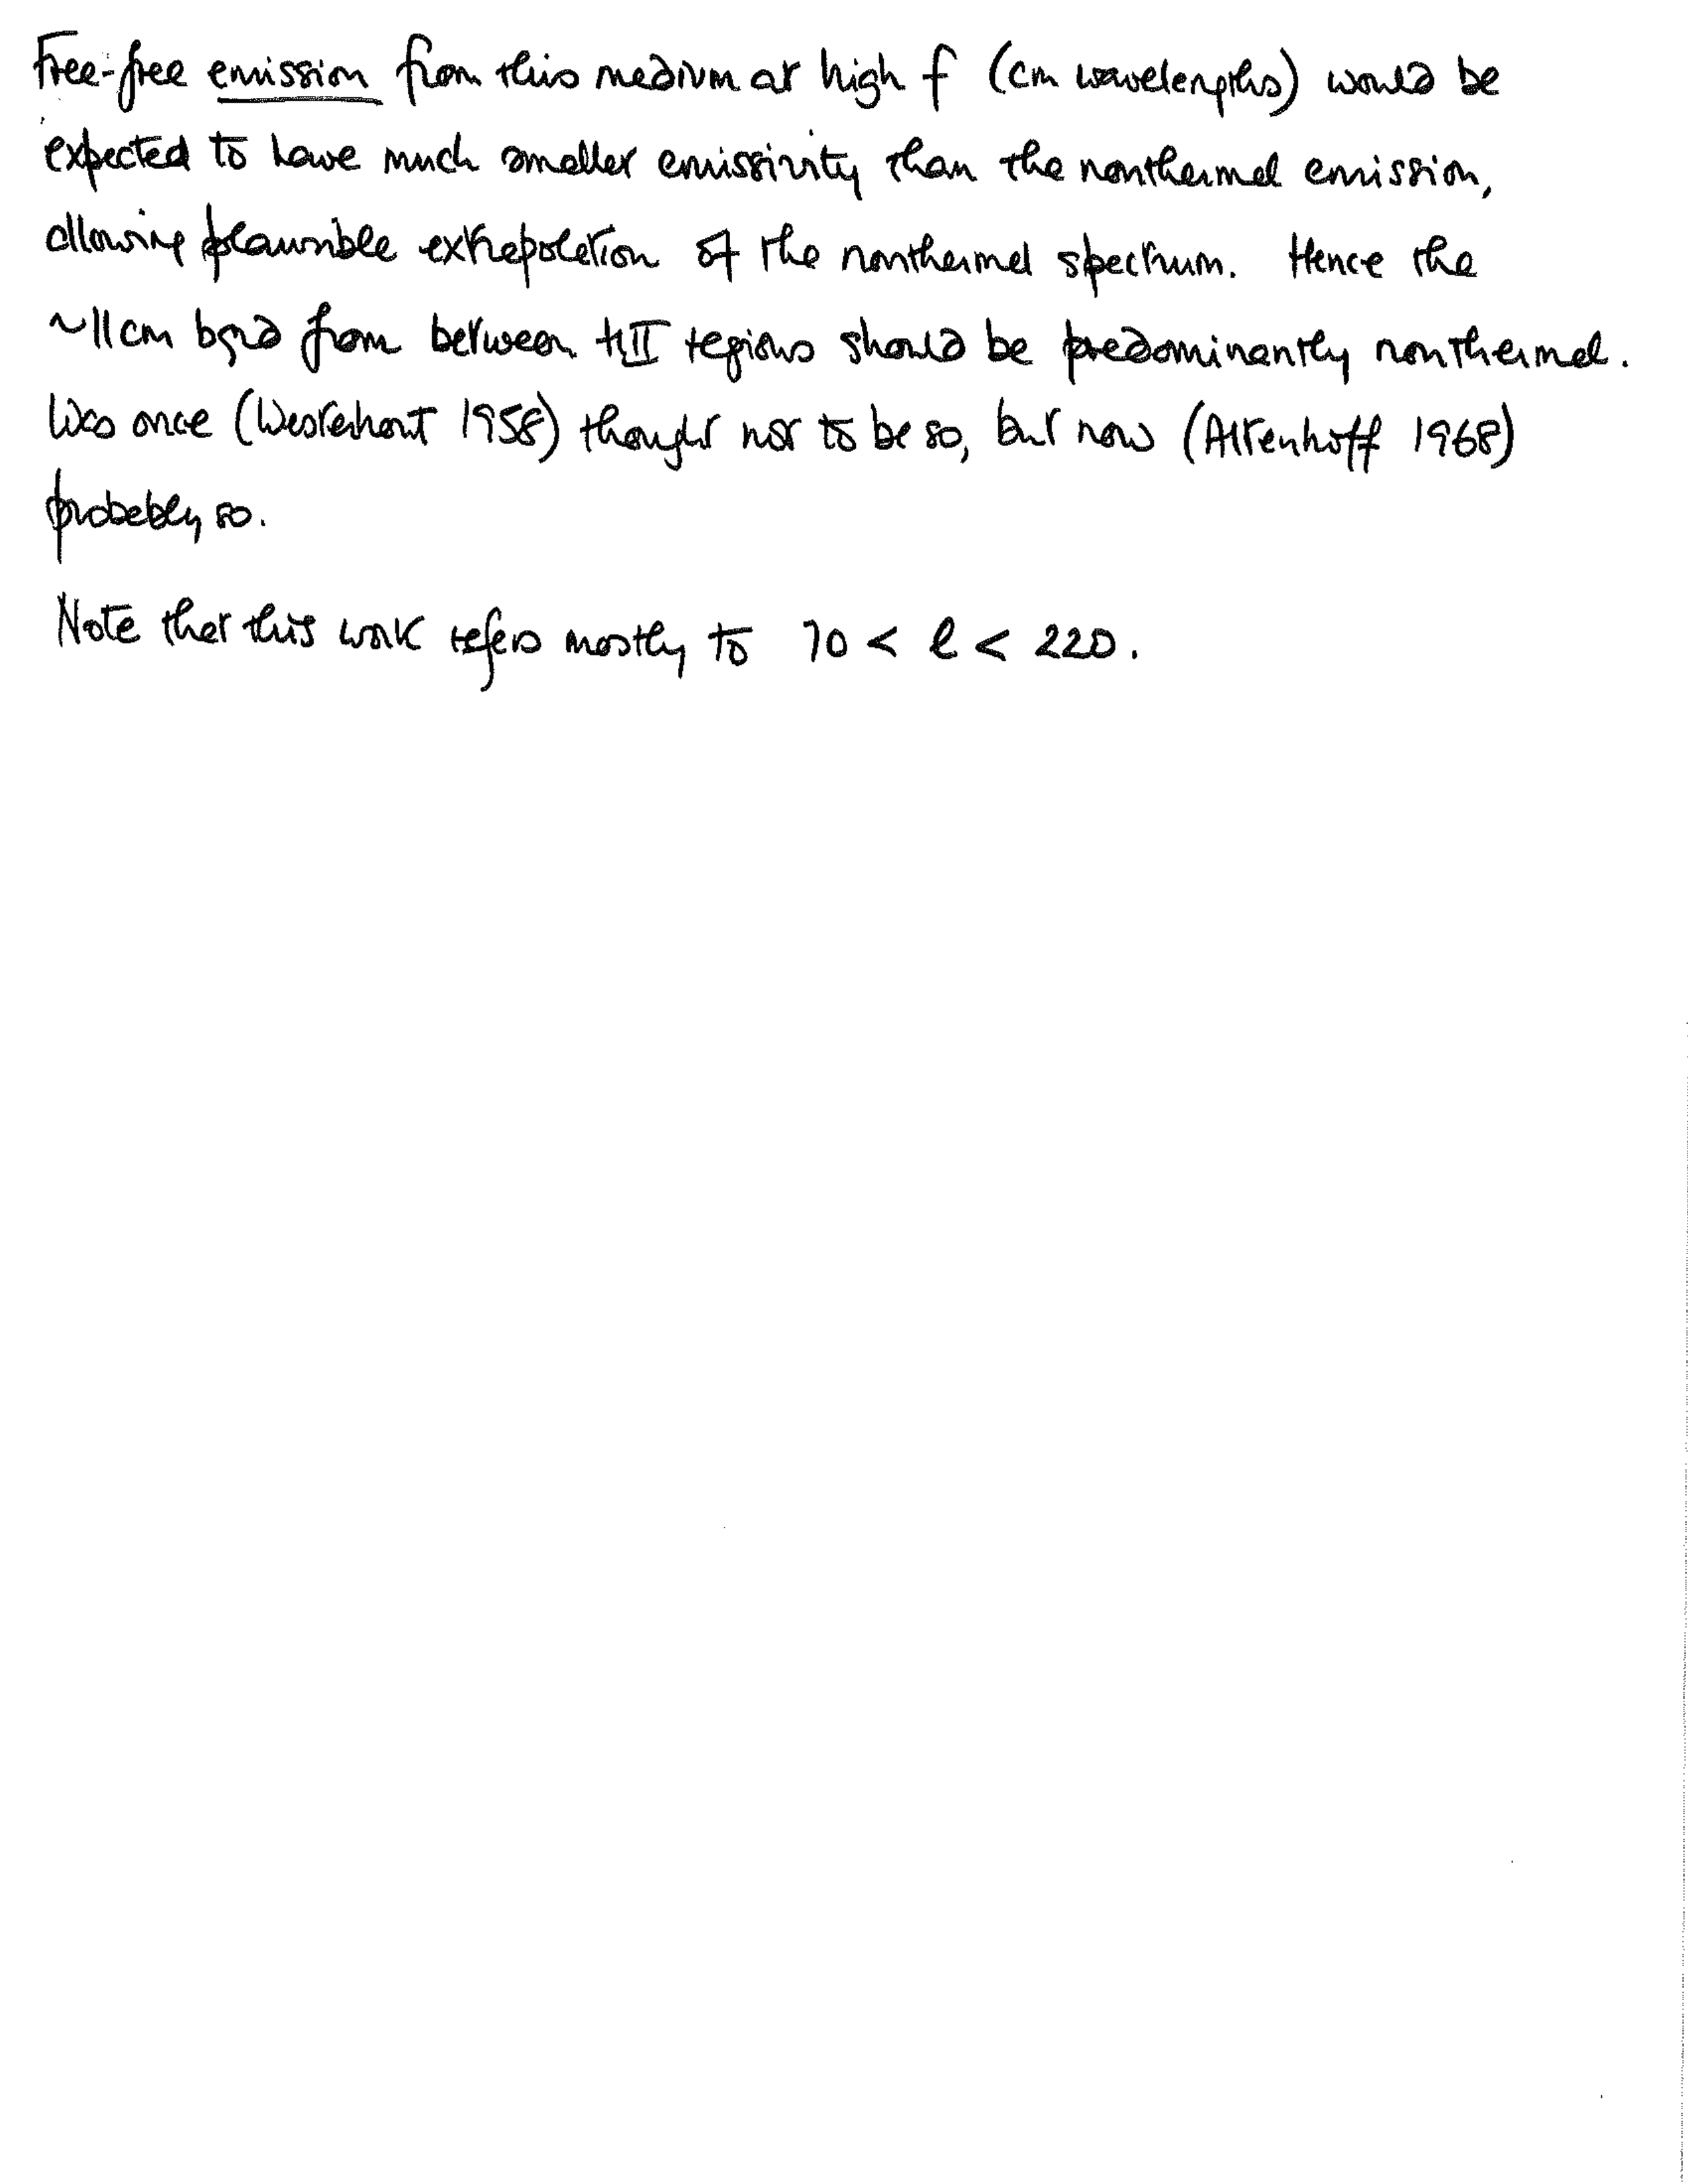 Free-free emission from this medium at high f (cm wavelengths) would be
expected to have much smaller emissivity than the nonthermal emission,
allowing plausible extrapolation of the nonthermal spectrum. Hence the
~11cm bgnd from between HII regions should be predominantly nonthermal.
Was once (Westerhout 1958) thought not to be so, but now (Altenhoff 1968)
probably so.
Note that this work refers mostly to 70 < l < 220.